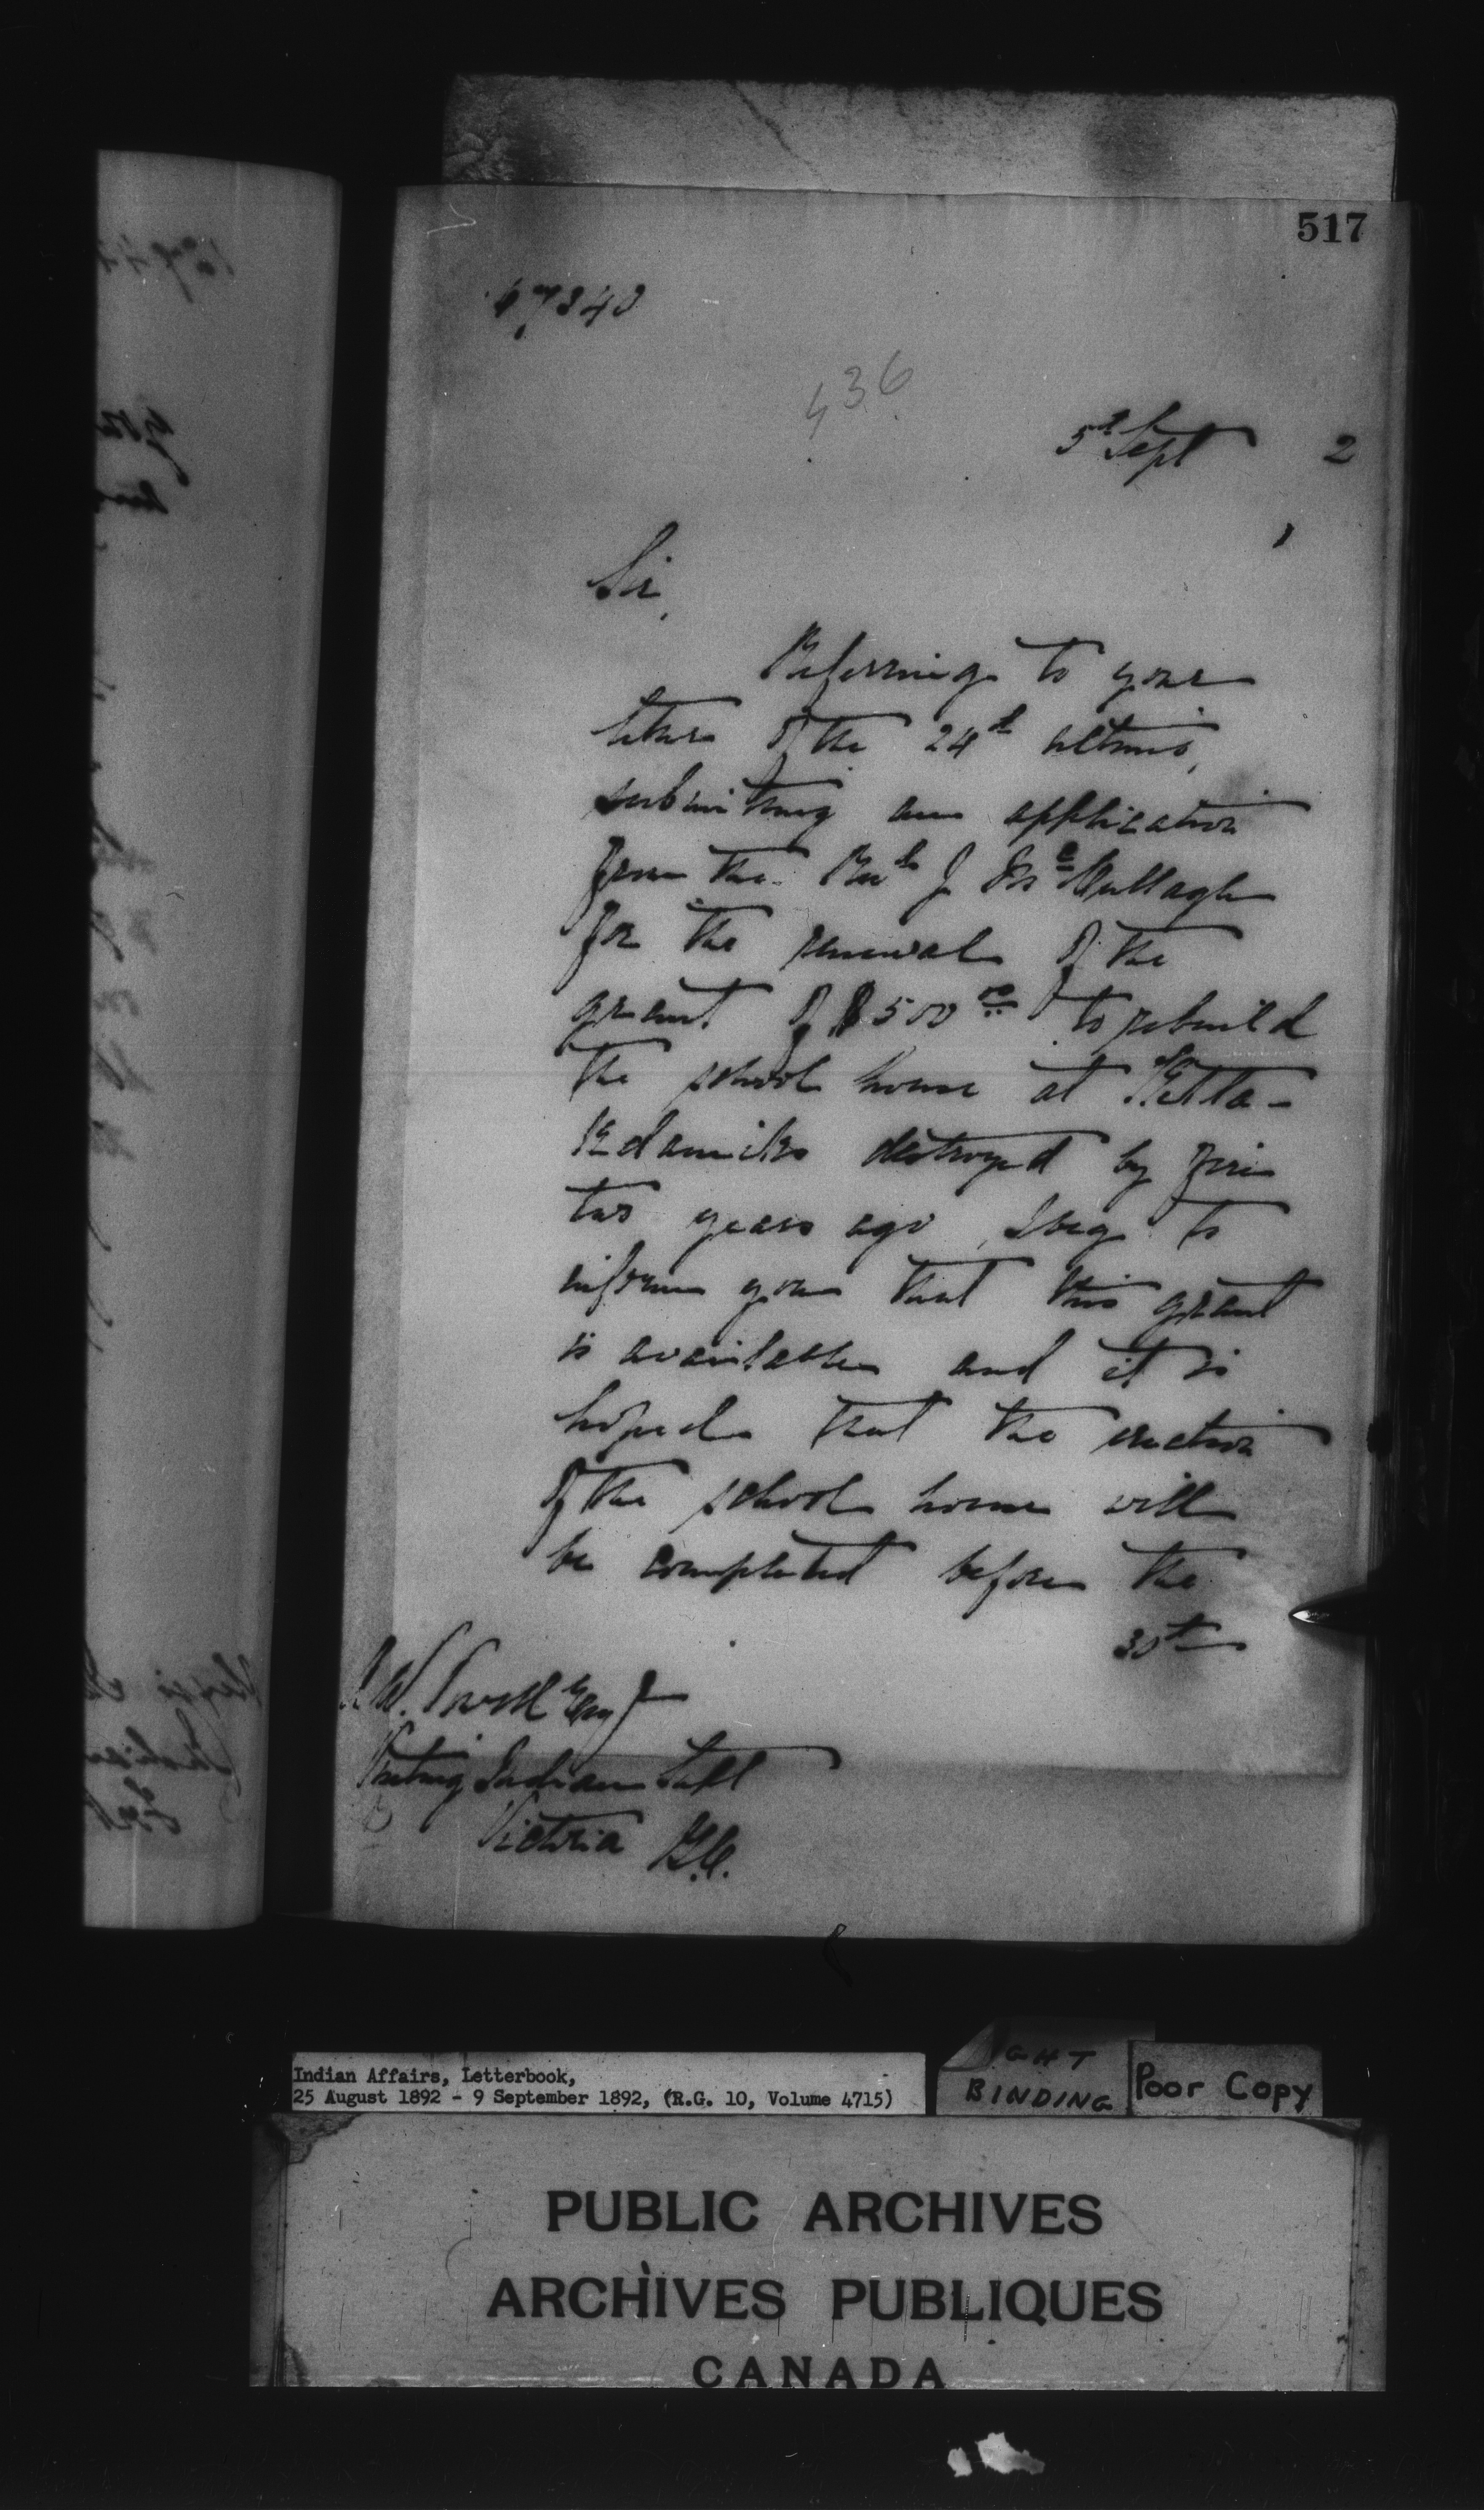 517
47343
436
5th Sept 2
Sir,
Referring to your
letter of the 24th ultimo,
submitting an application
from the Revd J McCullagh
for the renewal of the
grant of $500.00 to rebuild
the school house at Kitla-
kdamiks destroyed by fire
two years ago, I beg to
inform you that this grant
is available and it is
hoped that the erection
of the school house will
be completed before the
30th
A W. Vowell Esqr
Visiting Indian Supt
Victoria B.C.
Indian Affairs, Letterbook,
25 August 1892 - 9 September 1892, (R.G. 10, Volume 4715)
BINDING
Poor Copy
PUBLIC ARCHIVES
ARCHIVES PUBLIQUES
CANADA